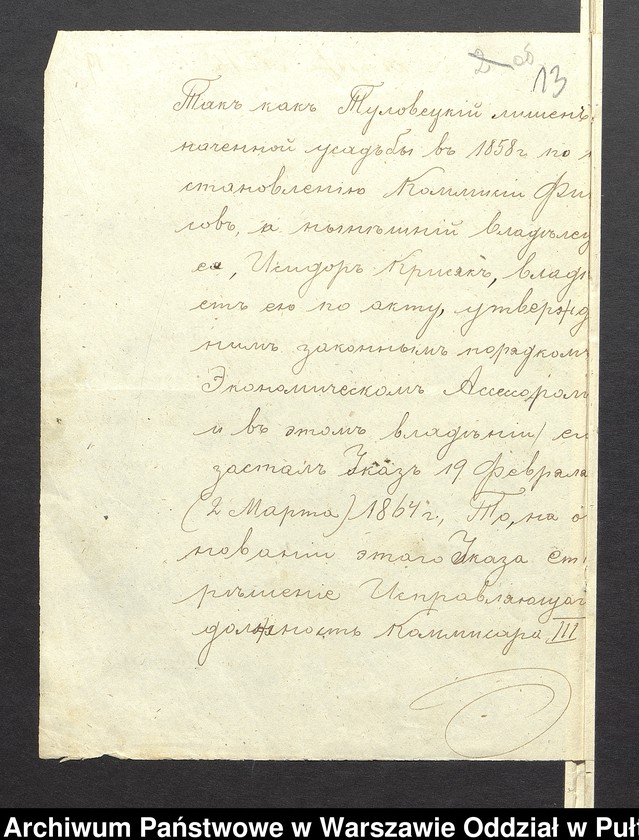 2 об
13
Такъ какъ Туловецкій лишенъ
наченной усадьбы въ 1858г по
становленію Коммисіи Фи
совъ, а нынѣшній владѣлец
ея, Исидоръ Крисякъ, владѣ
етъ ею по акту, утвержд
нымъ законнымъ порядкомъ
Экономическомъ Ассесоромъ
и въ этомъ владѣніи ег
засталъ Указъ 19 Февраля
(2 Марта) 1864 г., То, на о
нованіи этого Указа Ст
рѣшеніе Исправляющаг
должность Коммисара III
Archiwum Państwowe w Warszawie Oddział w Puł